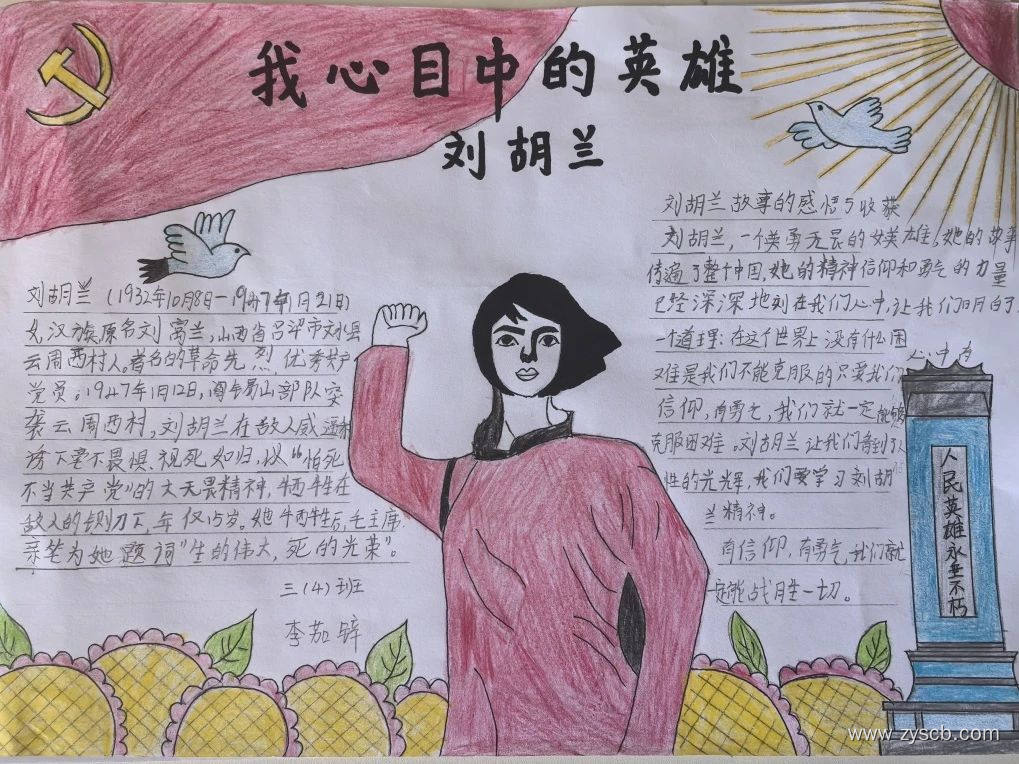 我心目中的英雄
刘胡兰
刘胡兰（1932年10月8日一1947年1月21日）
女,汉族原名刘富兰,山西省吕梁市文水县
云周西村人。著名的革命先烈,优秀共产
党员。1947年1月12日,阎锡山部队突
袭云周西村,刘胡兰在敌人威逼利
诱下毫不畏惧、视死如归,以“怕死
不当共产党”的大无畏精神,牺牲在
敌人的铡刀下,年仅15岁。她牺牲后,毛主席
亲笔为她题词“生的伟大,死的光荣”。
三（4）班
李茄锌
刘胡兰故事的感悟与收获
刘胡兰,一个英勇无畏的女英雄,她的故事
传遍了整个中国,她的精神信仰和勇气的力量
已经深深地刻在我们心中,让我们明白了
一个道理:在这个世界上没有什么困
难是我们不能克服的只要我们
信仰,有勇气,我们就一定能够
克服困难。刘胡兰让我们看到了
性的光辉,我们要学习刘胡
兰精神。
有信仰,有勇气,我们就
一定能战胜一切。
人民英雄永垂不朽
www.zyscb.com